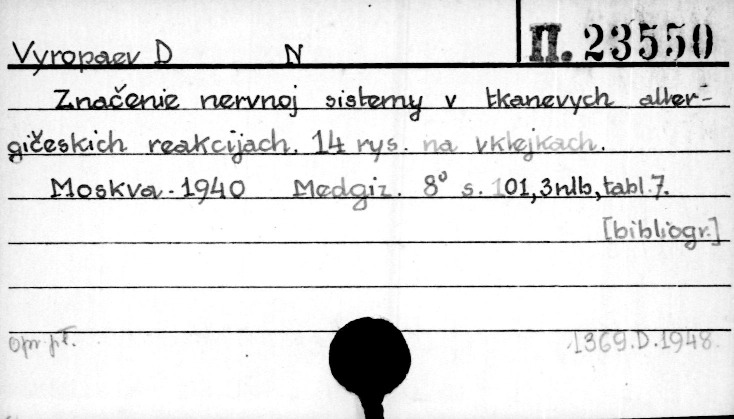 II. 23550
Vyropaev D N
Značenie nervnoj sistemy v tkanevych aller-
gičeskich reakcijach. 14 rys. na vklejkach.
Moskva - 1940 Medgiz. 8° s. 101, 3nlb, tabl. 7.
[bibliogr.]
Opr. pł. 1369.D.1948.